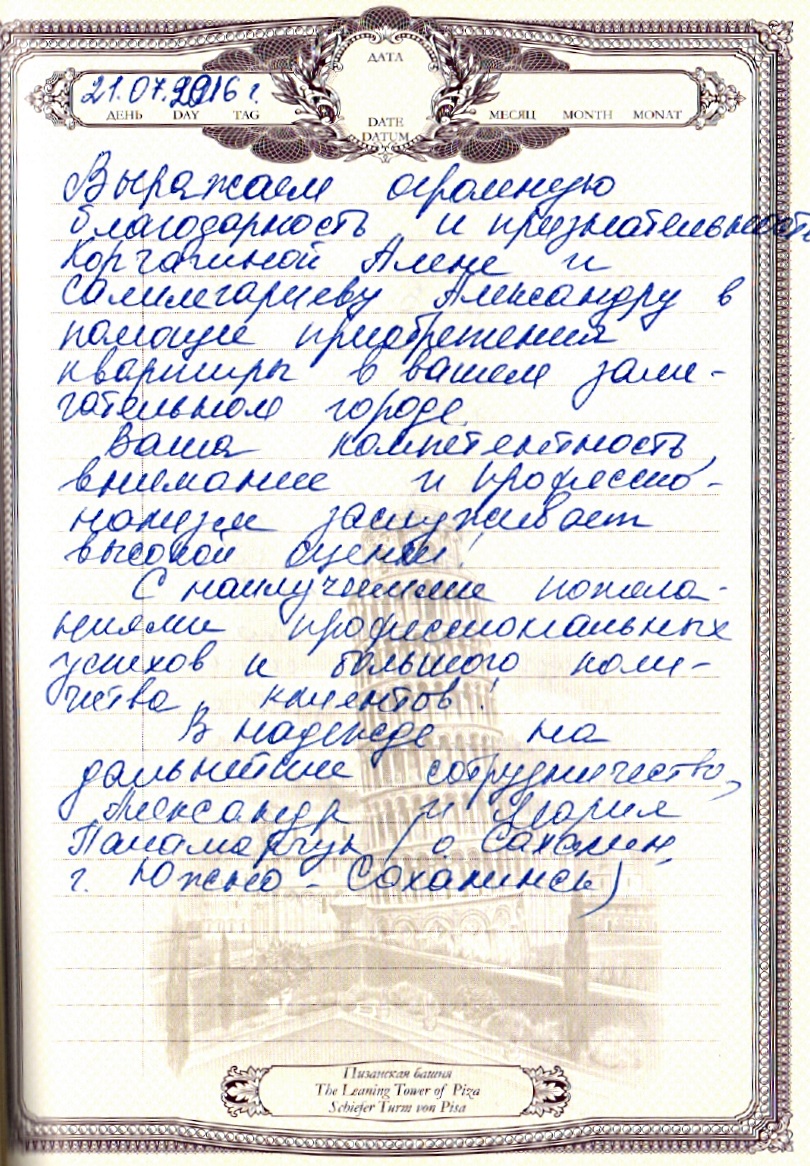 ДАТА
21.07.2016 г.
ДЕНЬ DAY TAG
DATE
DATUM
МЕСЯЦ MONTH MONAT
Выражаем огромную
благодарность и признательность
Корчагиной Алене и
Салимгариеву Александру в
помощи приобретения
квартиры в вашем заме-
чательном городе.
Ваша компетентность,
внимание и професио-
нализм заслуживает
высокой оценки!
С наилучшими пожела-
ниями профессиональных
успехов и большого коли-
чества клиентов!
В надежде на
дальнейшие сотрудничество,
Александр и Мария
Панамарчук (о. Сахалин,
г. Южно-Сахалинск)
Пизанская башня
The Leaning Tower of Piza
Schiefer Turm von Pisa